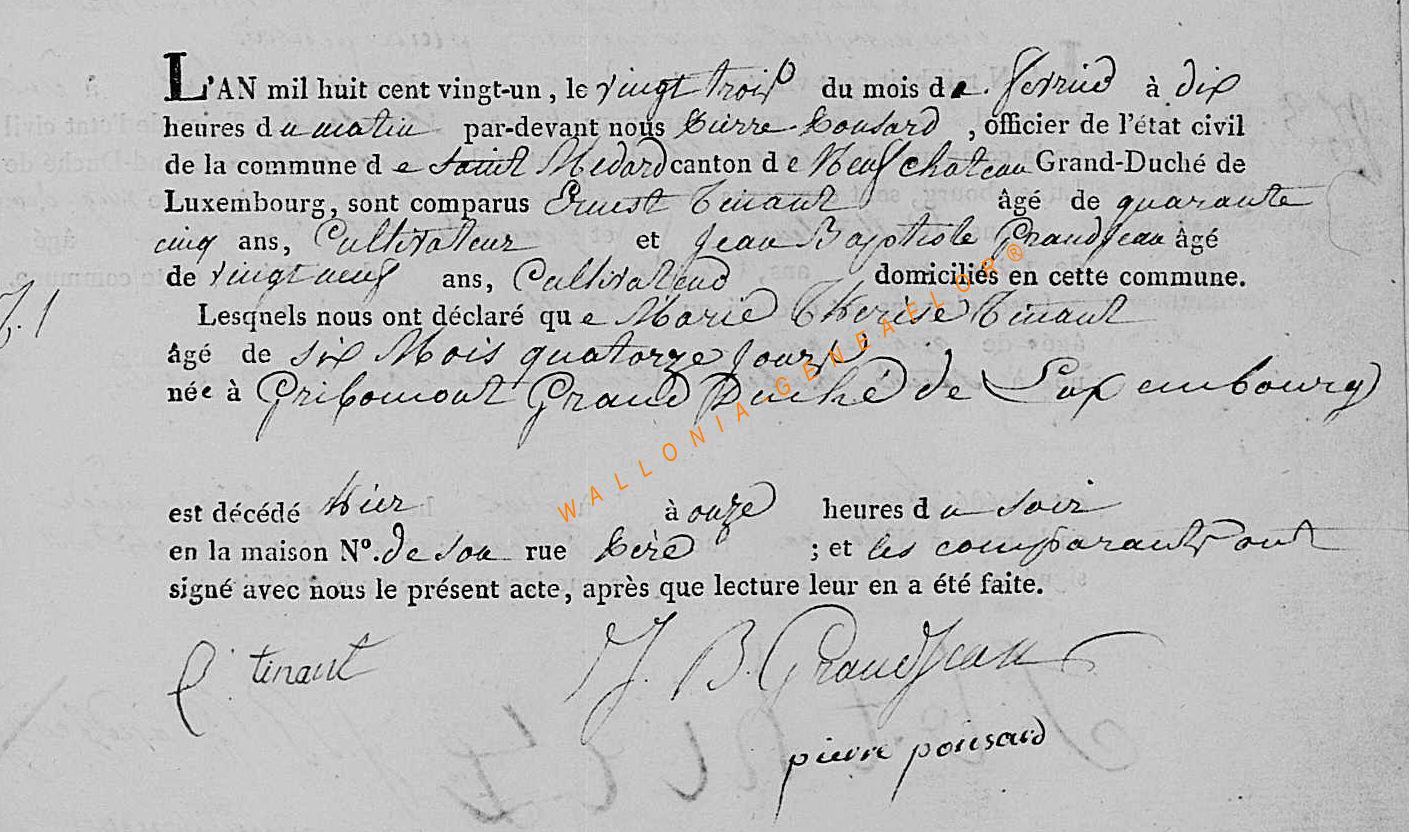 L'AN mil huit cent vingt-un, le vingt trois du mois de fevrier à dix
heures du matin par-devant nous Pierre Ponsard, officier de l'état civil
de la commune de Saint Medard canton de Neufchateau Grand-Duché de
Luxembourg, sont comparus Ernest Tinant âgé de quarante
cinq ans, Cultivateur et Jean Baptiste Grandjean âgé
de vingt neuf ans, Cultivateur domiciliés en cette commune.
Lesquels nous ont déclaré que Marie Therèse Tinant
âgé de six Mois quatorze jours
née à Gribomont Grand Duché de Luxembourg
est décédé hier à onze heures du soir
en la maison N°. de son rue Père ; et les comparants ont
signé avec nous le présent acte, après que lecture leur en a été faite.
E. tinant J. B. Grandjean
pierre ponsard
WALLONIA GENEAFLOR®